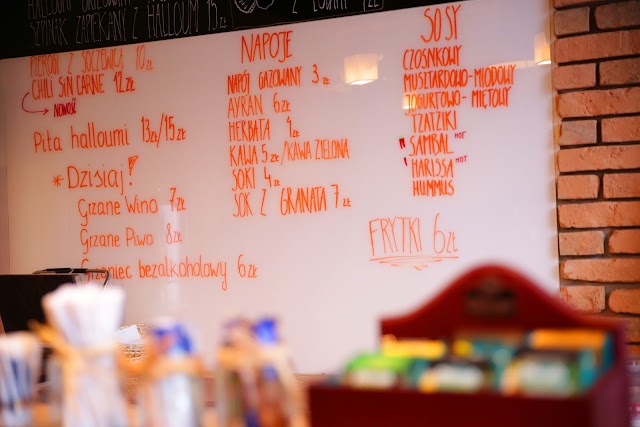 ZAPIEKANY Z HALLOUM 15 zł
PIEROGI Z SOCZEWICĄ 10 zł
CHILI SIN CARNE 12 zł
NOWOŚĆ
Pita halloumi 13zł/15zł
* Dzisiaj!
Grzane Wino 7zł
Grzane Piwo 8zł
Grzaniec bezalkoholowy 6zł
NAPOJE
NAPÓJ GAZOWANY 3 zł
AYRAN 6zł
HERBATA 4zł
KAWA 5zł /KAWA ZIELONA
SOKI 4zł
SOK Z GRANATA 7zł
SOSY
CZOSNKOWY
MUSZTARDOWO-MIODOWY
JOGURTOWO-MIĘTOWY
TZATZIKI
"SAMBAL HOT
'HARISSA HOT
HUMMUS
FRYTKI 6zł